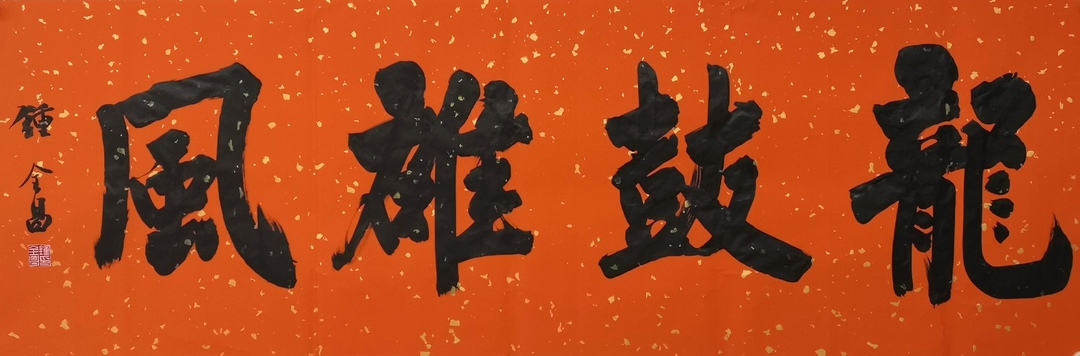 龍鼓雄風
鍾金昌